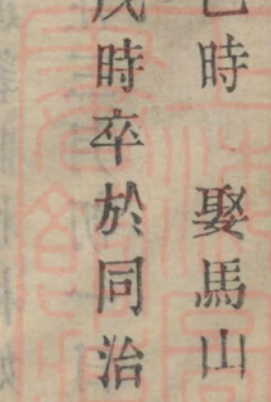 時 娶馬山
時卒於同治